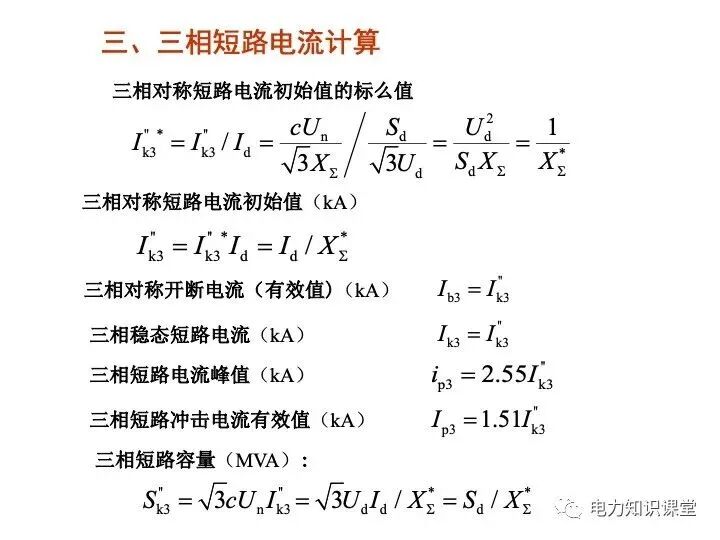 三、三相短路电流计算
三相对称短路电流初始值的标么值
I''*k3 = I''k3 / Id = cUn/√3XΣ / Sd/√3Ud = Ud²/SdXΣ = 1/X*Σ
三相对称短路电流初始值（kA）
I''k3 = I''*k3 Id = Id / X*Σ
三相对称开断电流（有效值)（kA） Ib3 = I''k3
三相稳态短路电流（kA） Ik3 = I''k3
三相短路电流峰值（kA） ip3 = 2.55I''k3
三相短路冲击电流有效值（kA） Ip3 = 1.51I''k3
三相短路容量（MVA）:
S''k3 = √3cUnI''k3 = √3UdId / X*Σ = Sd / X*Σ
电力知识课堂